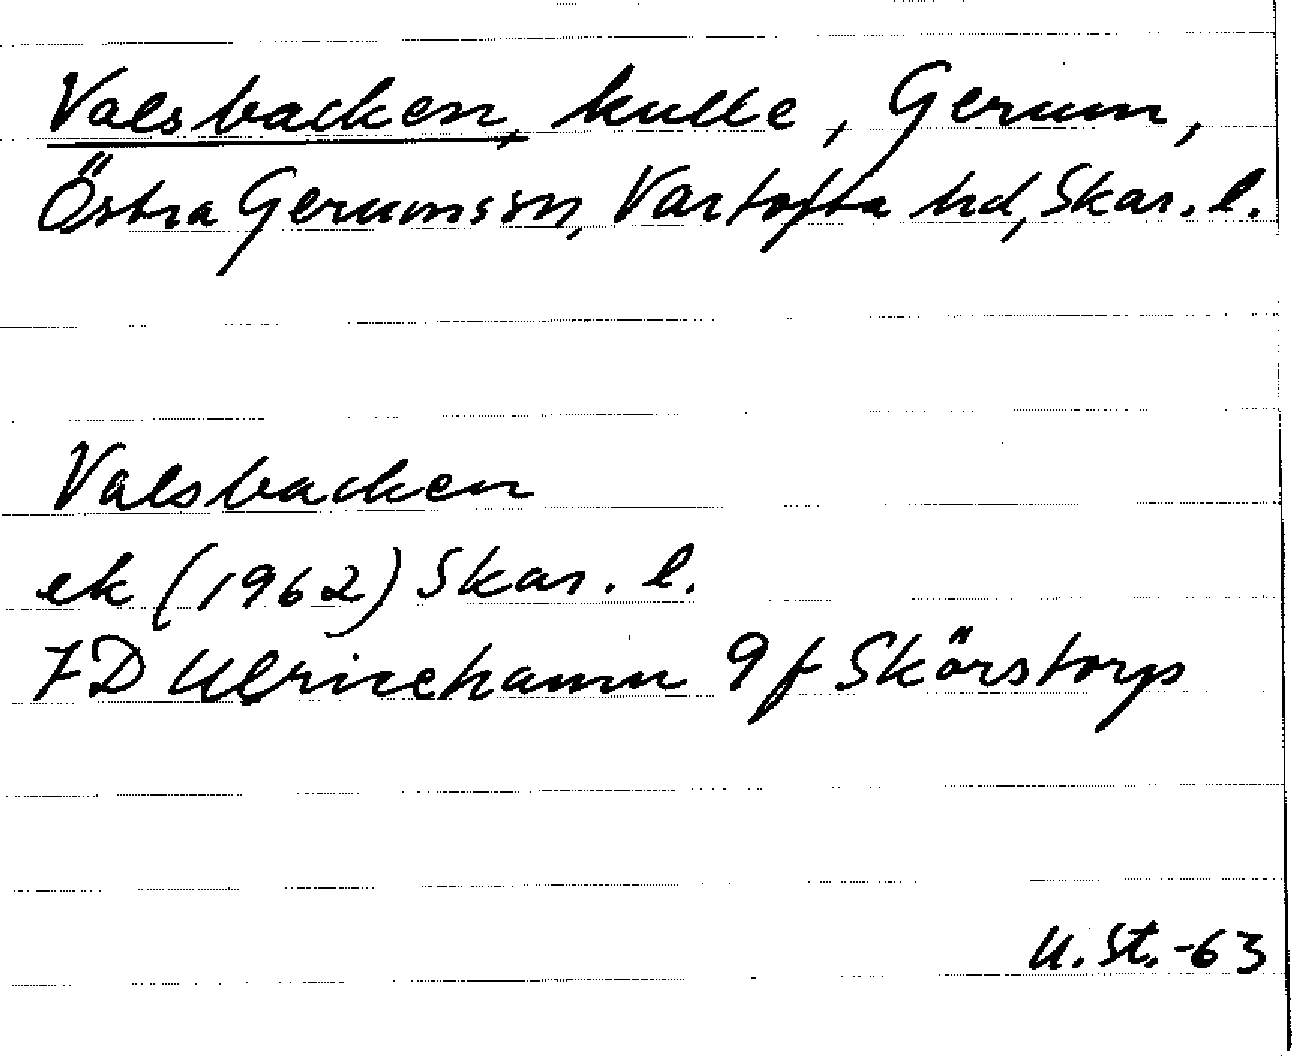 Valsbacken, kulle, Gerum,
Östra Gerumssn, Vartofta hd, Skar. l.
Valsbacken
ek (1962) Skar. l.
7D Ulricehamn 9f Skörstorp
U. St. -63